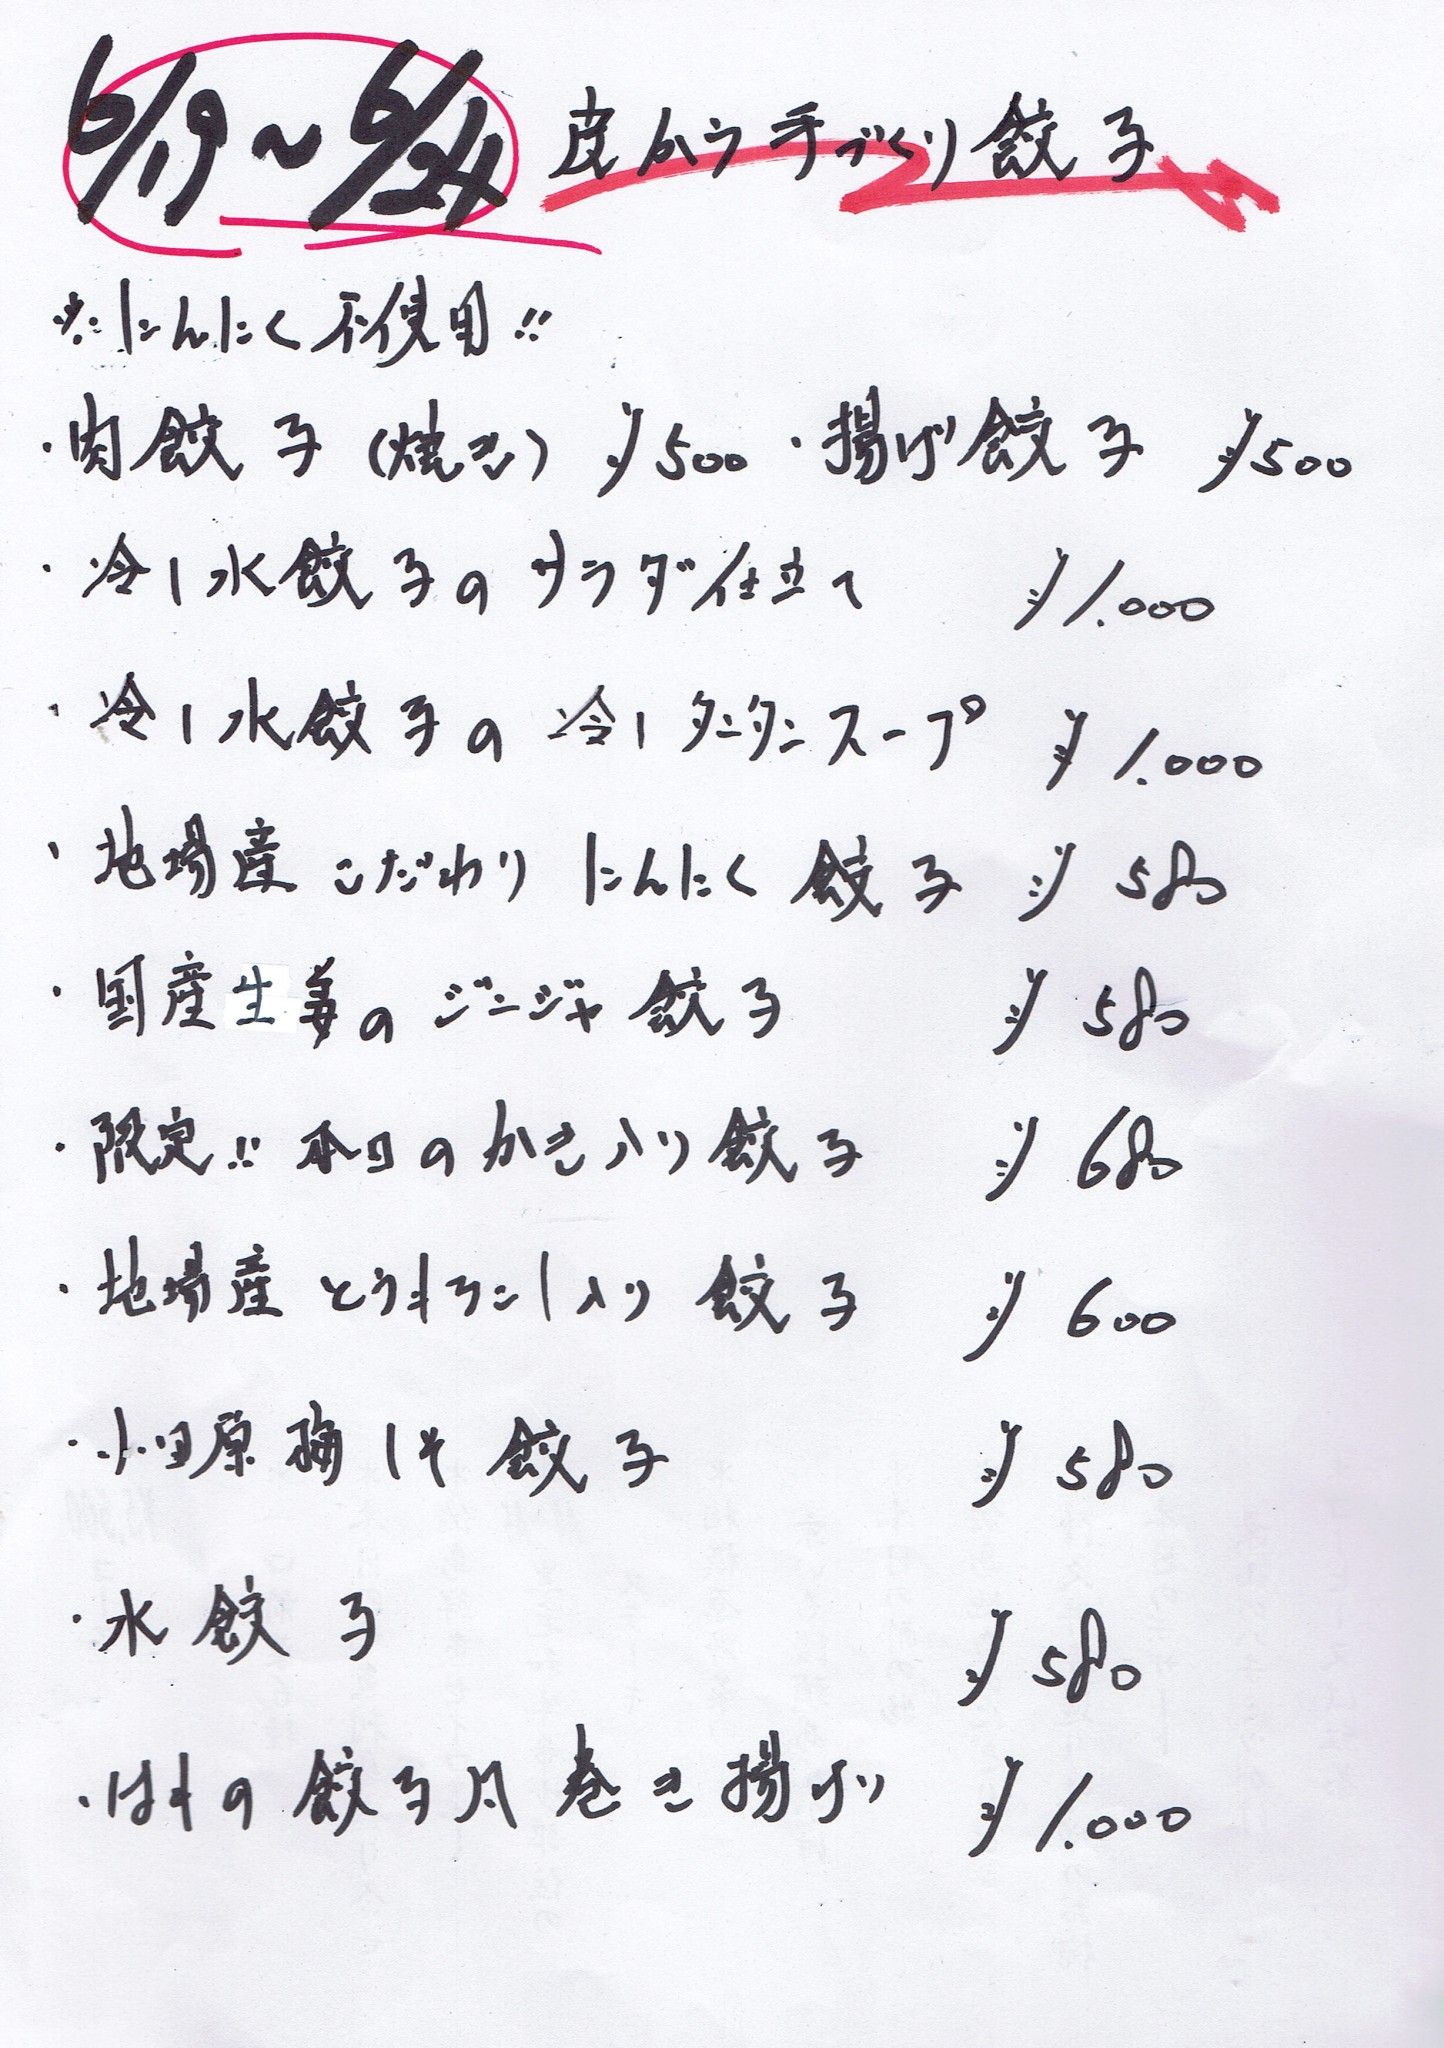 6/19～6/24 皮から手づくり餃子
※にんにく不使用!!
・肉餃子(焼き) ¥500 ・揚げ餃子 ¥500
・冷し水餃子のサラダ仕立て ¥1.000
・冷し水餃子の冷しタンタンスープ ¥1.000
・地場産こだわりにんにく餃子 ¥580
・国産生姜のジンジャ餃子 ¥580
・限定!!本日のかき入り餃子 ¥680
・地場産とうもろこし入り餃子 ¥600
・小田原梅しそ餃子 ¥580
・水餃子 ¥580
・はもの餃子 巻き揚げ ¥1.000